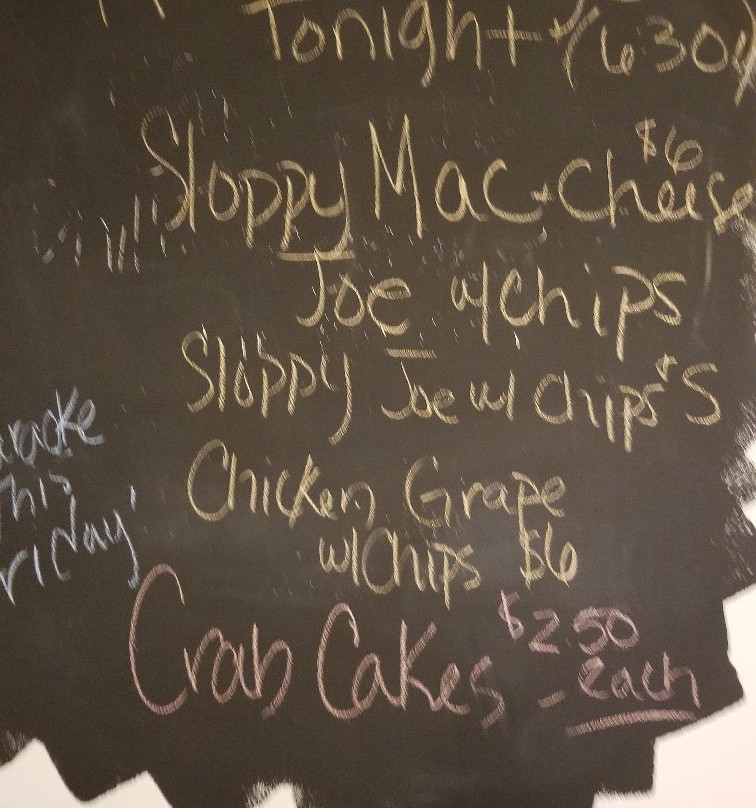 Tonight 630
Sloppy Mac + Cheese $6
Joe w/chips
Sloppy Joe w/ Chips $5
Chicken Grape
w/Chips $6
Crab Cakes - $2.50
each
this